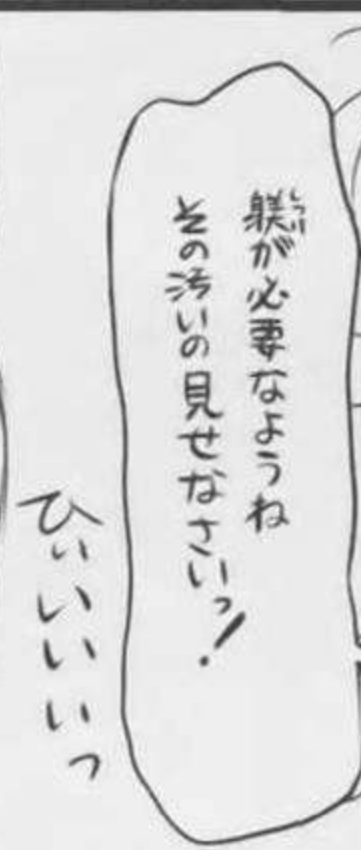 躾が必要なようね
その汚いの見せなさいっ!
ひぃいいいっ